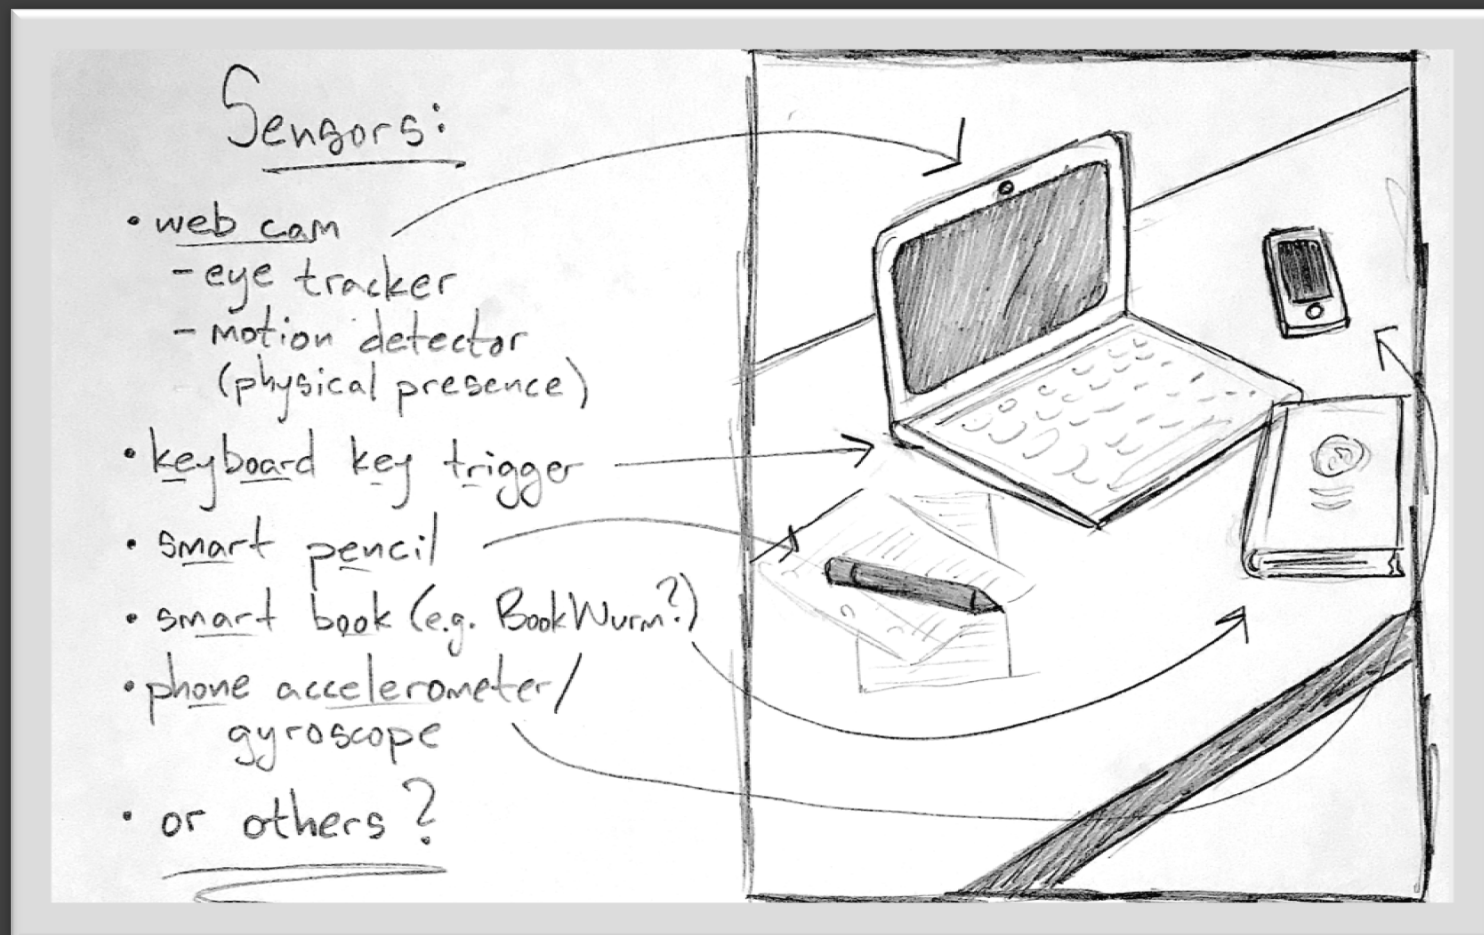 Sensors:
• web cam
- eye tracker
- motion detector
(physical presence)
• keyboard key trigger
• smart pencil
• smart book (e.g. BookWurm?)
• phone accelerometer/
gyroscope
• or others?